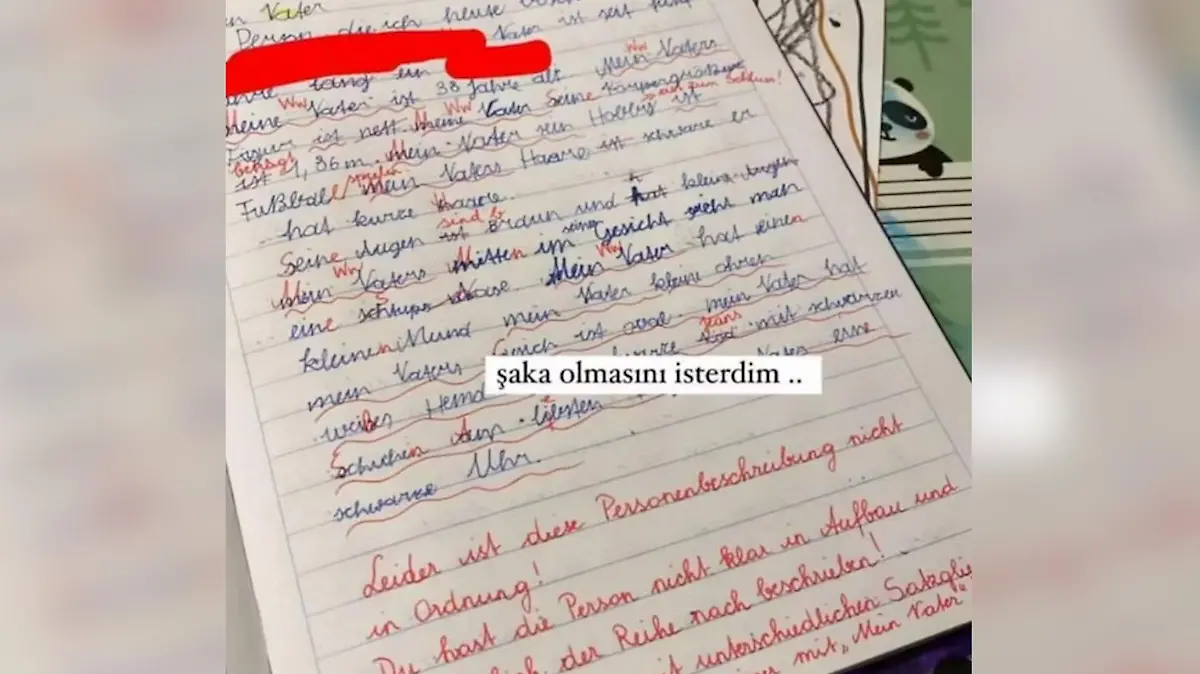 Vater
Person die ich heute
Vater ist seit
lang ein
Ww
Meine Vater ist 38 Jahre alt. Mein Vaters
Ww Ww
Figur ist nett. Meine Vater seine Körpergröße
erst zum Schluss!
beträgt
ist 1,36 m. Mein Vater sein Hobby ist
spielen
Fußball Mein Vaters Haare ist schwarz er
hat kurze Haare.
sind b
Seine Augen ist Braun und hat kleine Augen
Ww
Mein Vaters mitten im seine Gesicht sieht man
Ww
eine schlups Nase. Mein Vater hat einen
kleinen Mund mein Vater kleine ohren
mein Vaters ist oval. mein Vater hat
jeans
weißes Hemd mit schwarzen
şaka olmasını isterdim ..
Schuhen Am liebsten eine
schwarze Uhr.
Leider ist diese Personenbeschreibung nicht
in Ordnung!
Du hast die Person nicht klar in Aufbau und
der Reihe nach beschrieben!
unterschiedlichen
mit „Mein Vater"